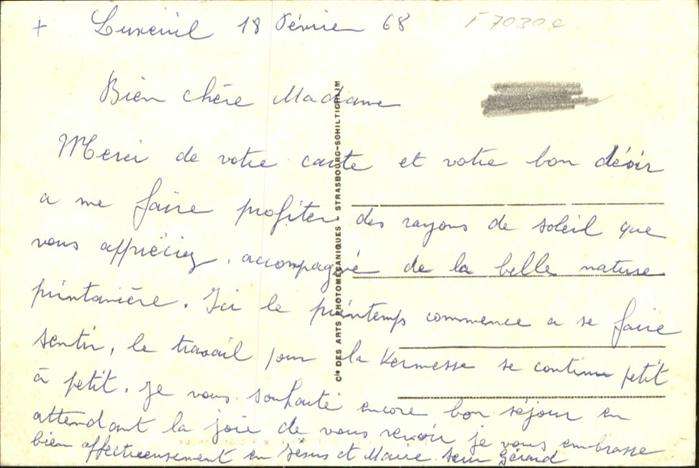 + Luxeuil 18 Février 68
F 7030 e
Bien chère Madame
Merci de votre carte et votre bon désir
a me faire profiter des rayons de soleil que
vous appréciez, accompagné de la belle nature
printanière. Ici le printemps commence a se faire
sentir, le travail pour la Kermesse se continue petit
à petit. Je vous souhaite encore bon séjour en
attendant la joie de vous revoir je vous embrasse
bien affectueusement en Jésus et Marie. Sœur Gérard
Cie DES ARTS PHOTOMÉCANIQUES - STRASBOURG-SCHILTIGHEIM